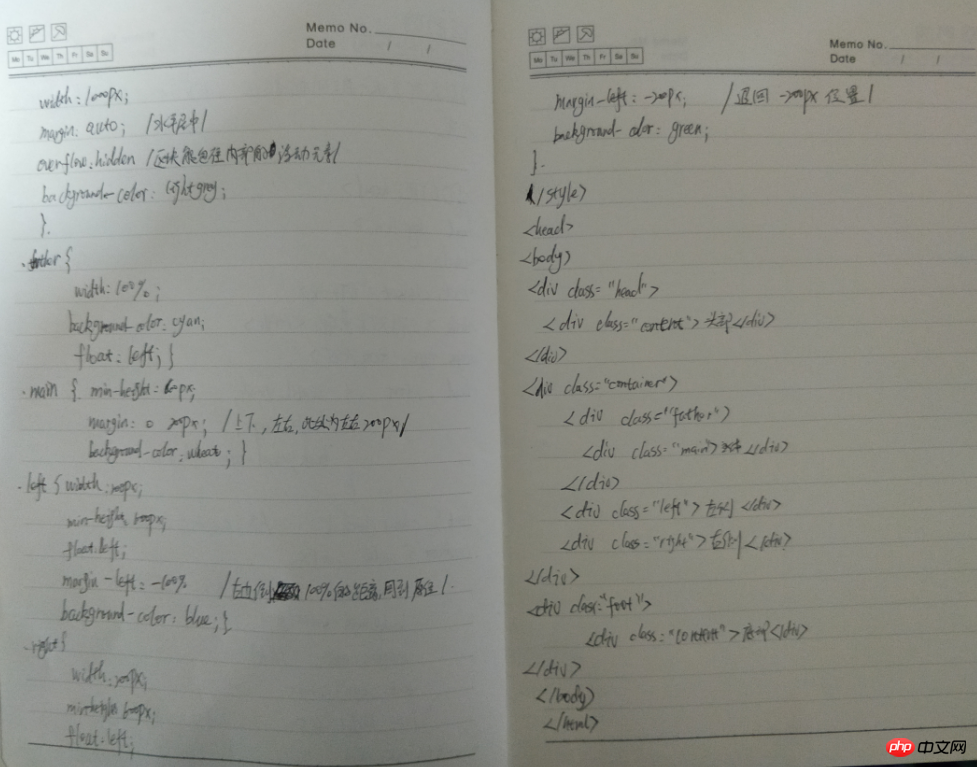 Memo No.
Date / /
Mo Tu We Th Fr Sa Su
width: 1000px;
margin: auto; /水平居中/
overflow: hidden /区块能包住内部的浮动元素/
background-color: lightgrey;
}.
{
width: 100%;
background-color: cyan;
float: left; }
.main { min-height: px;
margin: 0 200px; /上下, 左右, 此处为左右200px/
background-color: wheat; }
.left { width: 200px;
min-height: 600px;
float: left;
margin-left: -100% 100% 回到
background-color: blue; }
.right {
width: 200px;
min-height: 600px;
float: left;
Memo No.
Date / /
Mo Tu We Th Fr Sa Su
margin-left: -200px; /退回 -200px 位置/
background-color: green;
}.
</style>
<head>
<body>
<div class="head">
<div class="content">头部</div>
</div>
<div class="container">
<div class="father">
<div class="main"> </div>
</div>
<div class="left">左侧</div>
<div class="right">右侧</div>
</div>
<div class="foot">
<div class="content">底部</div>
</div>
</body>
</html>
php 中文网